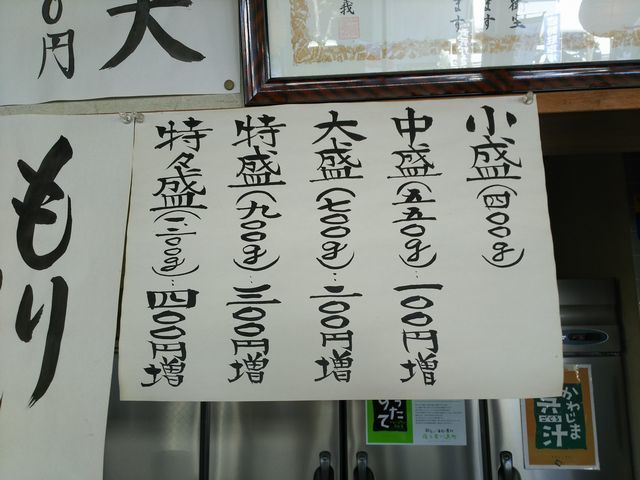 我
ます
小盛(四〇〇g)
中盛(五五〇g)…一〇〇円増
大盛(七〇〇g)…二〇〇円増
特盛(九〇〇g)…三〇〇円増
特々盛(一、二〇〇g)…四〇〇円増
大
〇円
もり
かわじま
呉汁
ごじる